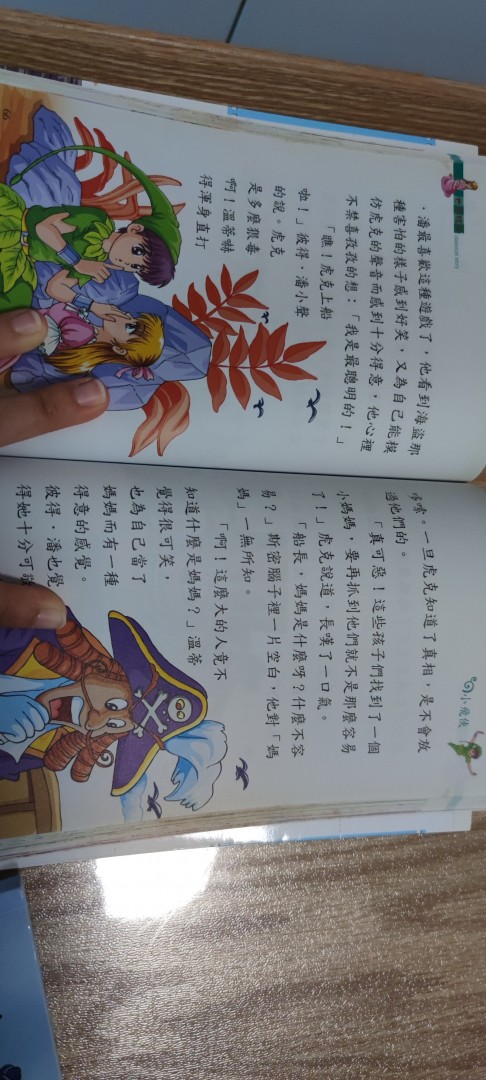 66
·潘最喜歡這種遊戲了，他看到海盜那
種害怕的樣子感到好笑，又為自己能模
仿虎克的聲音而感到十分得意，他心裡
不禁喜孜孜的想：「我是最聰明的！」
「瞧！虎克上船
啦！」彼得·潘小聲
的說。虎克
是多麼狠毒
啊！溫蒂嚇
得渾身直打
小飛俠
哆嗦。一旦虎克知道了真相，是不會放
過他們的。
「真可惡！這些孩子們找到了一個
小媽媽，要再抓到他們就不是那麼容易
了！」虎克說道，長嘆了一口氣。
「船長，媽媽是什麼呀？什麼不容
易？」斯密腦子裡一片空白，他對「媽
媽」一無所知。
「啊！這麼大的人竟不
知道什麼是媽媽？」溫蒂
覺得很可笑，
也為自己當了
媽媽而有一種
得意的感覺。
彼得·潘也覺
得她十分可